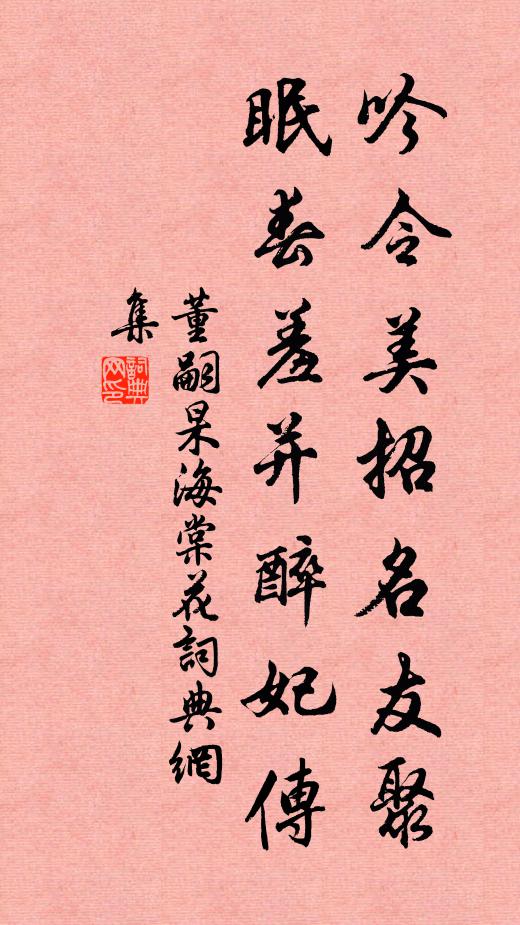 吟令美招名友聚
眠春羞并醉妃傳
董嗣杲海棠花詞典網
集
詞典
网印